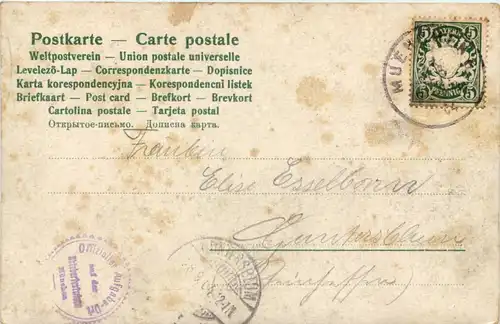 Postkarte — Carte postale
Weltpostverein — Union postale universelle
Levelező-Lap — Correspondenzkarte — Dopisnice
Karta korespondencyjna — Korespondencni listek
Briefkaart — Post card — Brefkort — Brevkort
Cartolina postale — Tarjeta postal
Открытое-письмо. Дописна карта.
5 5
PFENNIG
MUE
Fräulein
Elise Esselborn
Guntersblum
Offizieller Aufgabe-Ort
auf der
München
GUNTERSBLUM